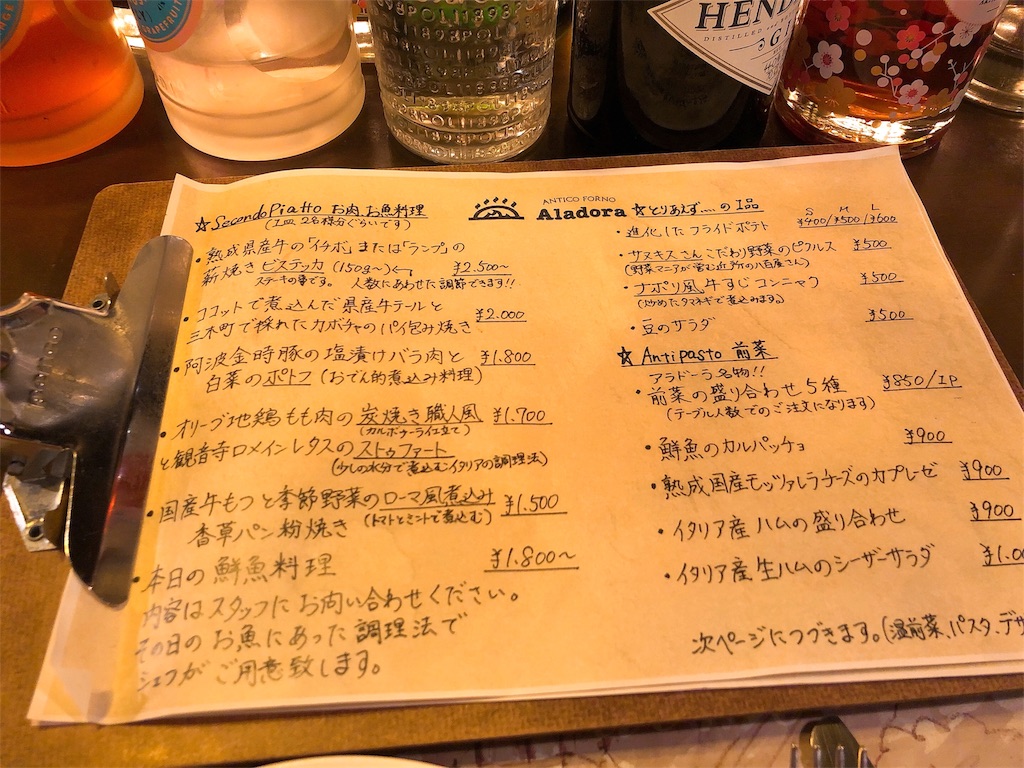 GRAPEFRUIT
1893POLI1893
HEND
DISTILLED
G
ANTICO FORNO
Aladora
☆Secondo Piatto お肉、お魚料理
(1皿 2名様分ぐらいです)
・熟成県産牛の「イチボ」または「ランプ」の
薪焼き ビステッカ (150g〜) ¥2.500〜
ステーキの事です。 人数にあわせた調節できます!!
・ココットで煮込んだ県産牛テールと
三木町で採れたカボチャのパイ包み焼き ¥2.000
・阿波金時豚の塩漬けバラ肉と ¥1.800
白菜のポトフ (おでん的煮込み料理)
・オリーブ地鶏もも肉の炭焼き職人風 ¥1.700
(カルボナーラ仕立て)
と観音寺ロメインレタスのストゥファート
(少しの水分で煮込むイタリアの調理法)
・国産牛もつと季節野菜のローマ風煮込み ¥1.500
香草パン粉焼き (トマトとミントで煮込む)
・本日の鮮魚料理 ¥1.800〜
内容はスタッフにお問い合わせください。
その日のお魚にあった調理法で
シェフがご用意致します。
☆とりあえず....の1品
S M L
・進化したフライドポテト ¥400/¥500/¥600
・サヌキスさんこだわり野菜のピクルス ¥500
(野菜マニアが営む近所の八百屋さん)
・ナポリ風牛すじコンニャク ¥500
(炒めたタマネギで煮込みます。)
・豆のサラダ ¥500
☆Antipasto 前菜
アラドーラ名物!!
・前菜の盛り合わせ5種 ¥850/1P
(テーブル人数でのご注文になります)
・鮮魚のカルパッチョ ¥900
・熟成国産モッツァレラチーズのカプレゼ ¥900
・イタリア産ハムの盛り合わせ ¥900
・イタリア産生ハムのシーザーサラダ ¥1.00
次ページにつづきます。(温前菜、パスタ、デザ